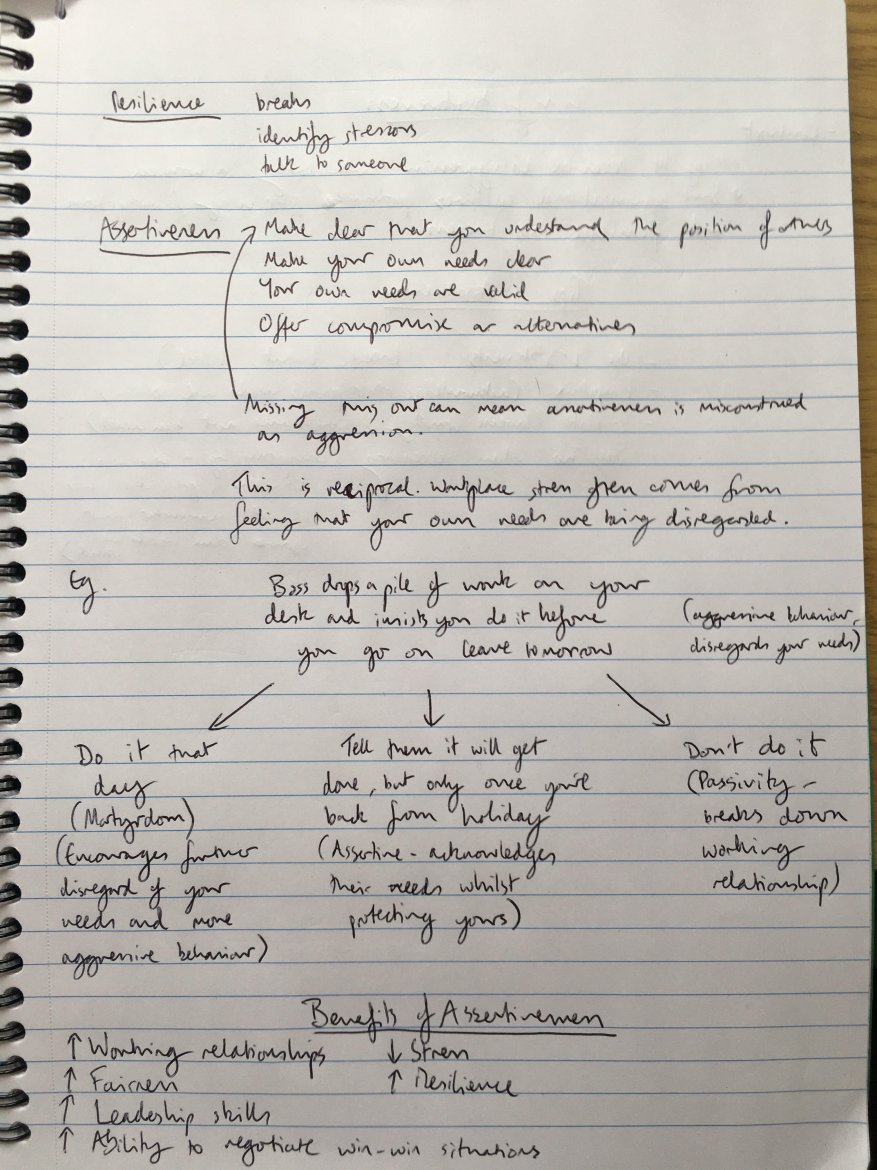 Resilience breaks
identify stressors
talk to someone
Assertiveness → Make clear that you understand the position of others
Make your own needs clear
Your own needs are valid
Offer compromise or alternatives
Missing this out can mean assertiveness is misconstrued
as aggression.
This is reciprocal. Workplace stress often comes from
feeling that your own needs are being disregarded.
Eg. Boss drops a pile of work on your
desk and insists you do it before (aggressive behaviour,
you go on leave tomorrow disregards your needs)
Do it that
day
(Martyrdom)
(Encourages further
disregard of your
needs and more
aggressive behaviour)
Tell them it will get
done, but only once you're
back from holiday
(Assertive - acknowledges
their needs whilst
protecting yours)
Don't do it
(Passivity -
breaks down
working
relationship)
Benefits of Assertiveness
↑ Working relationships ↓ Stress
↑ Fairness ↑ Resilience
↑ Leadership skills
↑ Ability to negotiate win-win situations